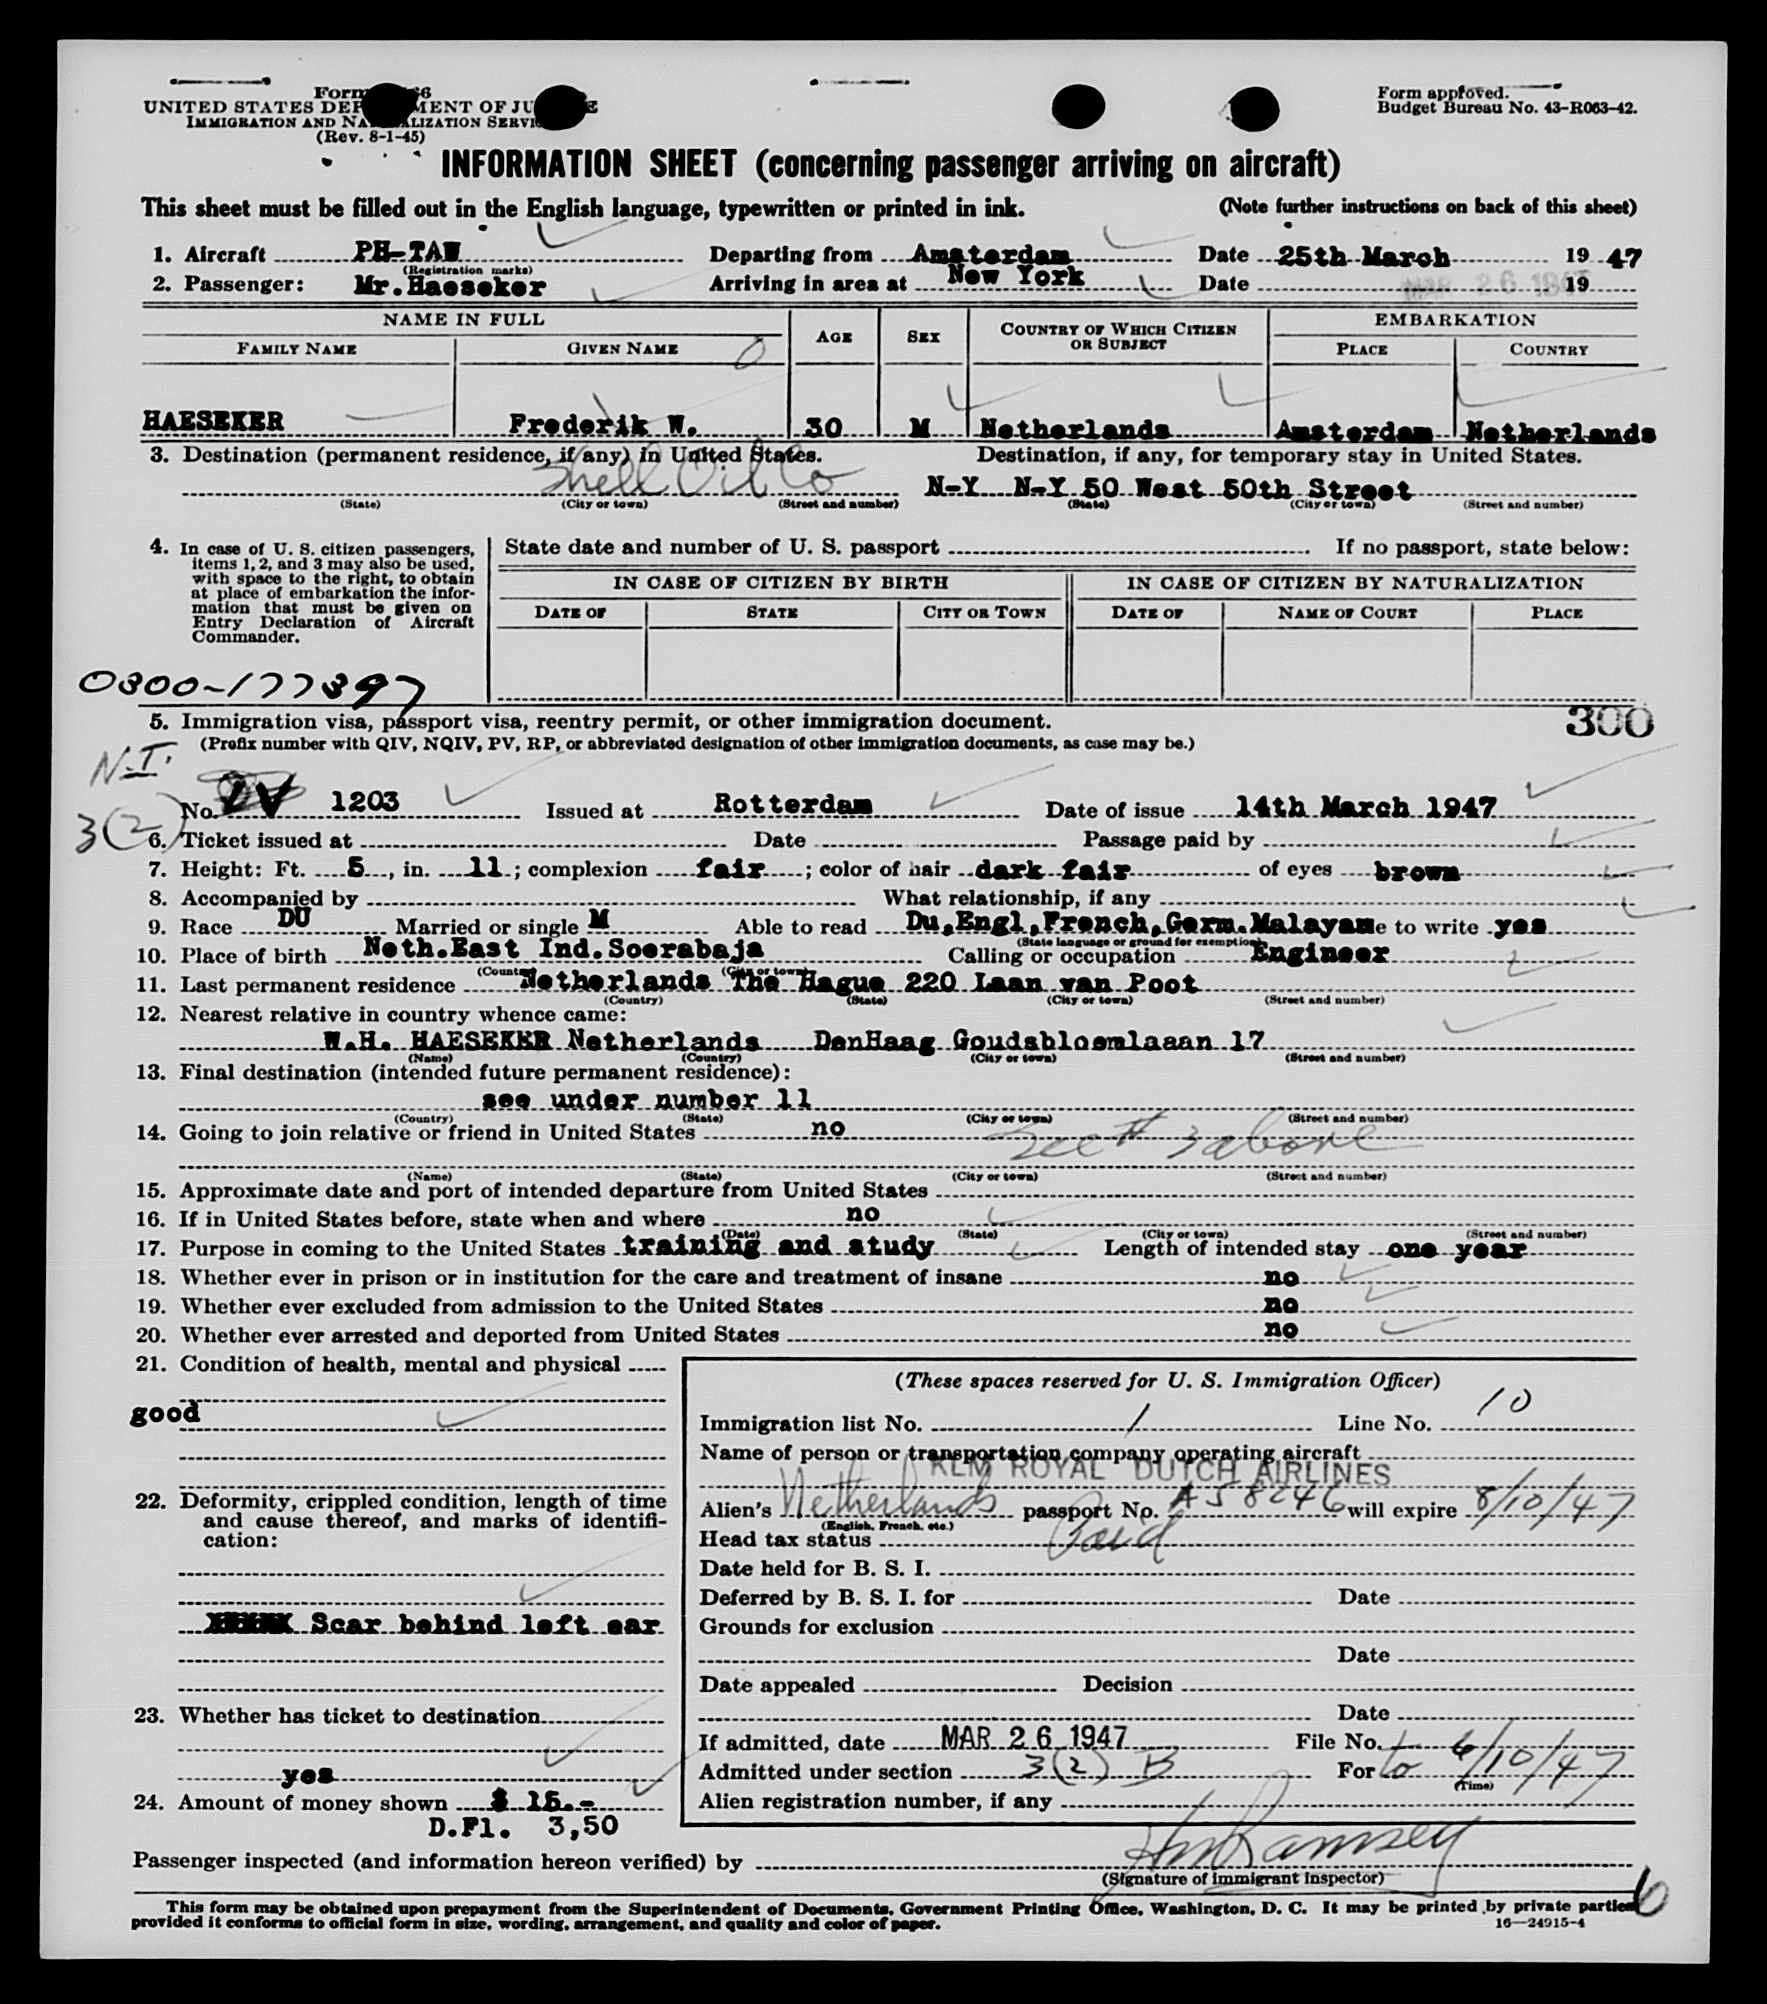 Form
UNITED STATES DEP MENT OF JU E
IMMIGRATION AND NA LIZATION SERVI
(Rev. 8-1-45)
Form approved.
Budget Bureau No. 43-R063-42.
INFORMATION SHEET (concerning passenger arriving on aircraft)
This sheet must be filled out in the English language, typewritten or printed in ink. (Note further instructions on back of this sheet)
1. Aircraft PH-TAW Departing from Amsterdam Date 25th March 19 47
(Registration marks)
2. Passenger: Mr.Haeseker Arriving in area at New York Date MAR 26 1947 19
NAME IN FULL AGE SEX COUNTRY OF WHICH CITIZEN OR SUBJECT EMBARKATION
FAMILY NAME GIVEN NAME PLACE COUNTRY
HAESEKER Frederik W. 30 M Netherlands Amsterdam Netherlands
3. Destination (permanent residence, if any) in United States. Destination, if any, for temporary stay in United States.
Shell Oil Co N-Y N-Y 50 West 50th Street
(State) (City or town) (Street and number) (State) (City or town) (Street and number)
4. In case of U. S. citizen passengers, items 1, 2, and 3 may also be used, with space to the right, to obtain at place of embarkation the infor-
mation that must be given on Entry Declaration of Aircraft Commander.
State date and number of U. S. passport If no passport, state below:
IN CASE OF CITIZEN BY BIRTH IN CASE OF CITIZEN BY NATURALIZATION
DATE OF STATE CITY OR TOWN DATE OF NAME OF COURT PLACE
0300-177397
5. Immigration visa, passport visa, reentry permit, or other immigration document. 300
(Prefix number with QIV, NQIV, PV, RP, or abbreviated designation of other immigration documents, as case may be.)
N.I.
3(2)
No. 1203 Issued at Rotterdam Date of issue 14th March 1947
6. Ticket issued at Date Passage paid by
7. Height: Ft. 5, in. 11; complexion fair; color of hair dark fair of eyes brown
8. Accompanied by What relationship, if any
9. Race DU Married or single M Able to read Du,Engl,French,Germ.Malayam e to write yes
(State language or ground for exemption)
10. Place of birth Neth.East Ind.Soerabaja Calling or occupation Engineer
(Country) (City or town)
11. Last permanent residence Netherlands The Hague 220 Laan van Poot
(Country) (State) (City or town) (Street and number)
12. Nearest relative in country whence came:
W.H. HAESEKER Netherlands DenHaag Goudsbloemlaaan 17
(Name) (Country) (City or town) (Street and number)
13. Final destination (intended future permanent residence):
see under number 11
(Country) (State) (City or town) (Street and number)
14. Going to join relative or friend in United States no
See # 3 above
(Name) (State) (City or town) (Street and number)
15. Approximate date and port of intended departure from United States
16. If in United States before, state when and where no
(Date) (State) (City or town) (Street and number)
17. Purpose in coming to the United States training and study Length of intended stay one year
18. Whether ever in prison or in institution for the care and treatment of insane no
19. Whether ever excluded from admission to the United States no
20. Whether ever arrested and deported from United States no
21. Condition of health, mental and physical
good
22. Deformity, crippled condition, length of time and cause thereof, and marks of identifi-
cation:
Scar behind left ear
23. Whether has ticket to destination
yes
24. Amount of money shown $ 15.-
D.Fl. 3,50
(These spaces reserved for U. S. Immigration Officer)
Immigration list No. 1 Line No. 10
Name of person or transportation company operating aircraft
KLM ROYAL DUTCH AIRLINES
Alien's Netherlands passport No. A58246 will expire 8/10/47
(English, French, etc.)
Head tax status Paid
Date held for B. S. I.
Deferred by B. S. I. for Date
Grounds for exclusion
Date
Date appealed Decision
Date
If admitted, date MAR 26 1947 File No.
Admitted under section 3(2) B For to 6/10/47
(Time)
Alien registration number, if any
Passenger inspected (and information hereon verified) by HmRamsey
(Signature of immigrant inspector)
6
This form may be obtained upon prepayment from the Superintendent of Documents, Government Printing Office, Washington, D. C. It may be printed by private parties
provided it conforms to official form in size, wording, arrangement, and quality and color of paper. 16—24915-4